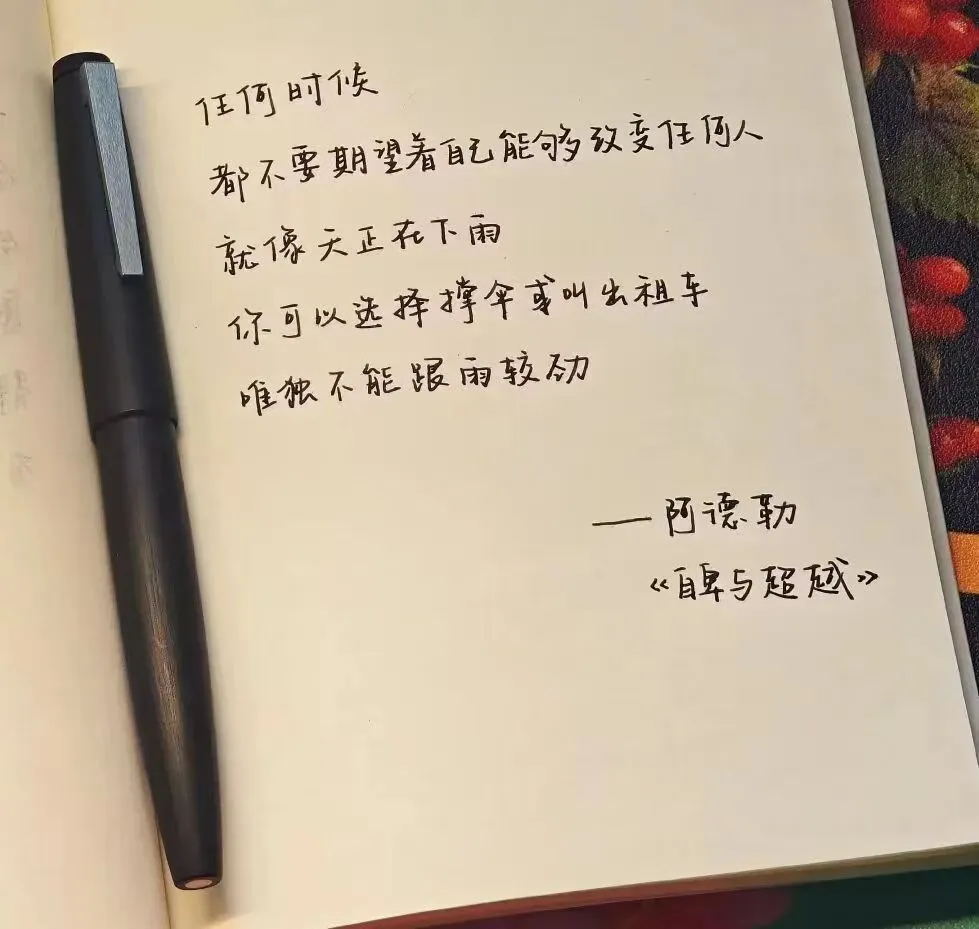 任何时候
都不要期望着自己能够改变任何人
就像天正在下雨
你可以选择撑伞或叫出租车
唯独不能跟雨较劲
——阿德勒
《自卑与超越》